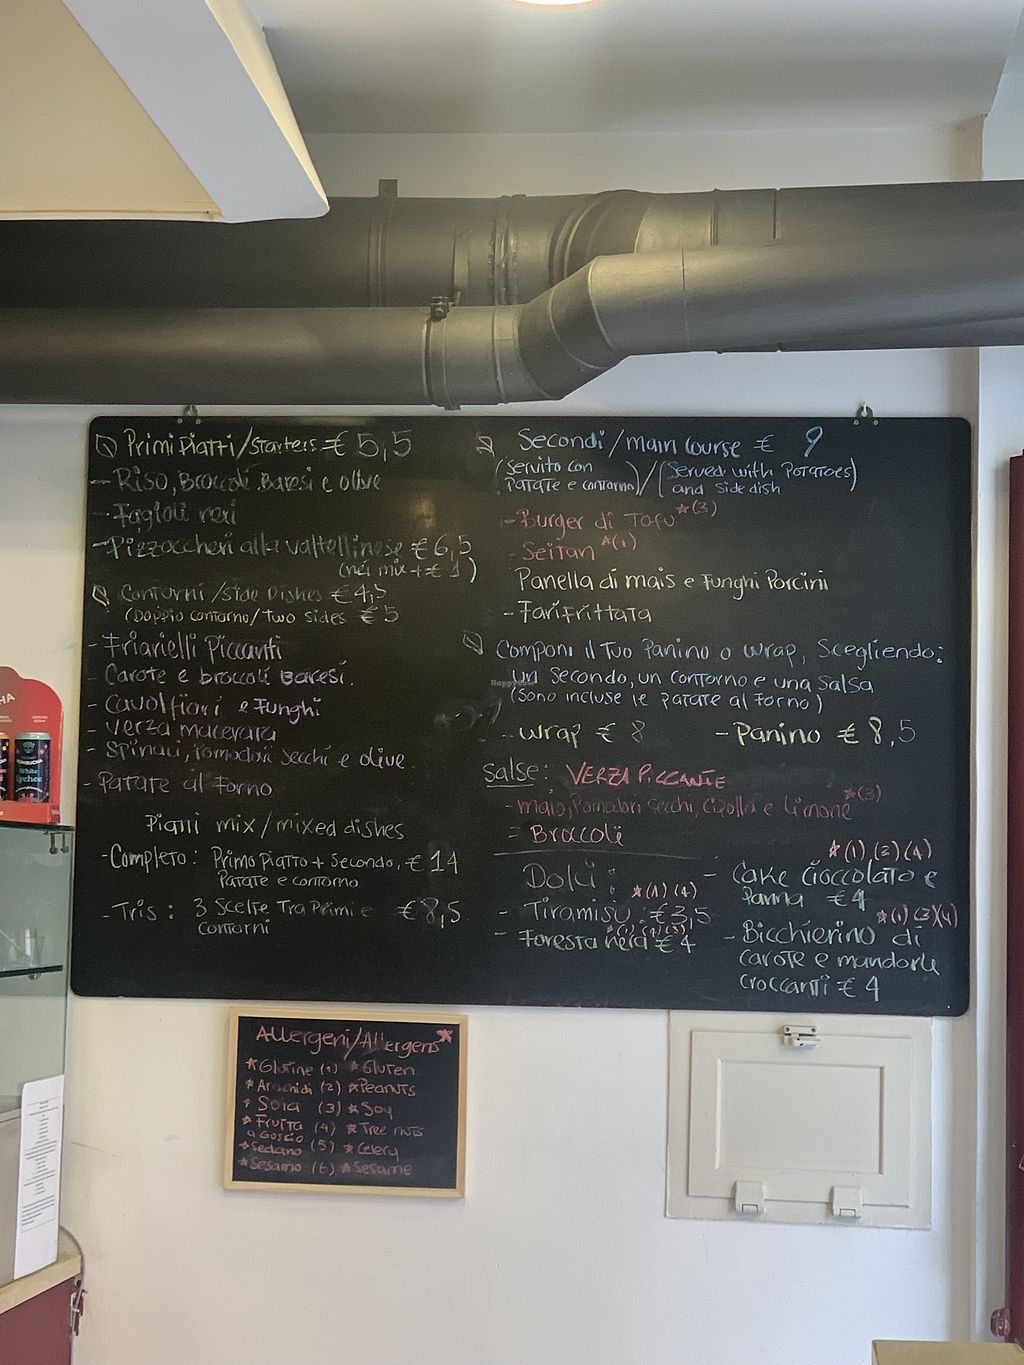 Primi Piatti/Starters € 5,5
- Riso, Broccoli Baresi e olive
- Fagioli neri
- Pizzoccheri alla valtellinese € 6,5
(nei mix + € 1)
Contorni/Side Dishes € 4,5
(Doppio contorno/Two sides € 5
- Friarielli Piccanti
- Carote e broccoli Baresi.
- Cavolfiori e Funghi
- Verza macerata
- Spinaci, Pomodori Secchi e olive.
- Patate al Forno
Piatti mix/mixed dishes
- Completo: Primo Piatto + Secondo, € 14
Patate e contorno
- Tris: 3 Scelte Tra Primi e € 8,5
Contorni
Secondi/main Course € 9
(Servito con Patate e contorno)/(Served with POTATOES and side dish)
- Burger di Tofu *(3)
- Seitan *(1)
Panella di mais e Funghi Porcini
- Farifrittata
Componi il Tuo Panino o Wrap, Scegliendo:
un Secondo, un contorno e una Salsa
(Sono incluse le Patate al Forno)
- Wrap € 8 - Panino € 8,5
Salse: VERZA PICCANTE
- maio, Pomodori secchi, cipolla e limone *(3)
= Broccoli
Dolci:
*(1) (4)
- Tiramisù € 3,5
*(1) (4) (3)
- Foresta nera € 4
*(1) (3) (4)
- Cake Cioccolato e
Panna € 4
*(1) (3)(4)
- Bicchierino di
carote e mandorle
croccanti € 4
Allergeni/Allergens *
*Glutine (1) *Gluten
*Arachidi (2) *Peanuts
*Soia (3) *Soy
*Frutta a Guscio (4) *Tree nuts
*Sedano (5) *Celery
*Sesamo (6) *Sesame
HappyCow
White
Lychee